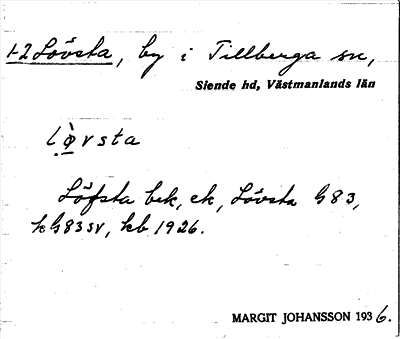 1-2 Lövsta, by i Tillberga sn,
Siende hd, Västmanlands län
lø̀vsta
Löfsta bek, ek, Lövsta G83,
kG83sv, kb 1926.
MARGIT JOHANSSON 1936.